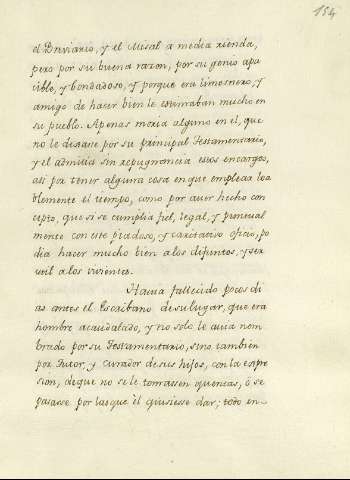 154
el Breviario, y el Misal a media rienda,
pero por su buena razon, por su genio apa
cible, y bondadoso, y porque era limosnero, y
amigo de hacer bien le estimaban mucho en
su pueblo. Apenas moria alguno en el, que
no le dexase por su principal Testamentario,
y el admitia sin repugnancia esos encargos,
asi por tener alguna cosa en que emplear loa
blemente el tiempo, como por aver hecho con
cepto, que si se cumplia fiel, legal, y puntual
mente con este piadoso, y caritativo oficio, po
dia hacer mucho bien a los difuntos, y ser
util a los vivientes.
Havia fallecido pocos di
as antes el Escribano de su lugar, que era
hombre acaudalado, y no solo le avia nom
brado por su Testamentario, sino tambien
por Tutor, y curador de sus hijos, con la expre
sion, de que no se le tomassen quentas, ô se
pasasse por las que èl quisiesse dar; todo en-